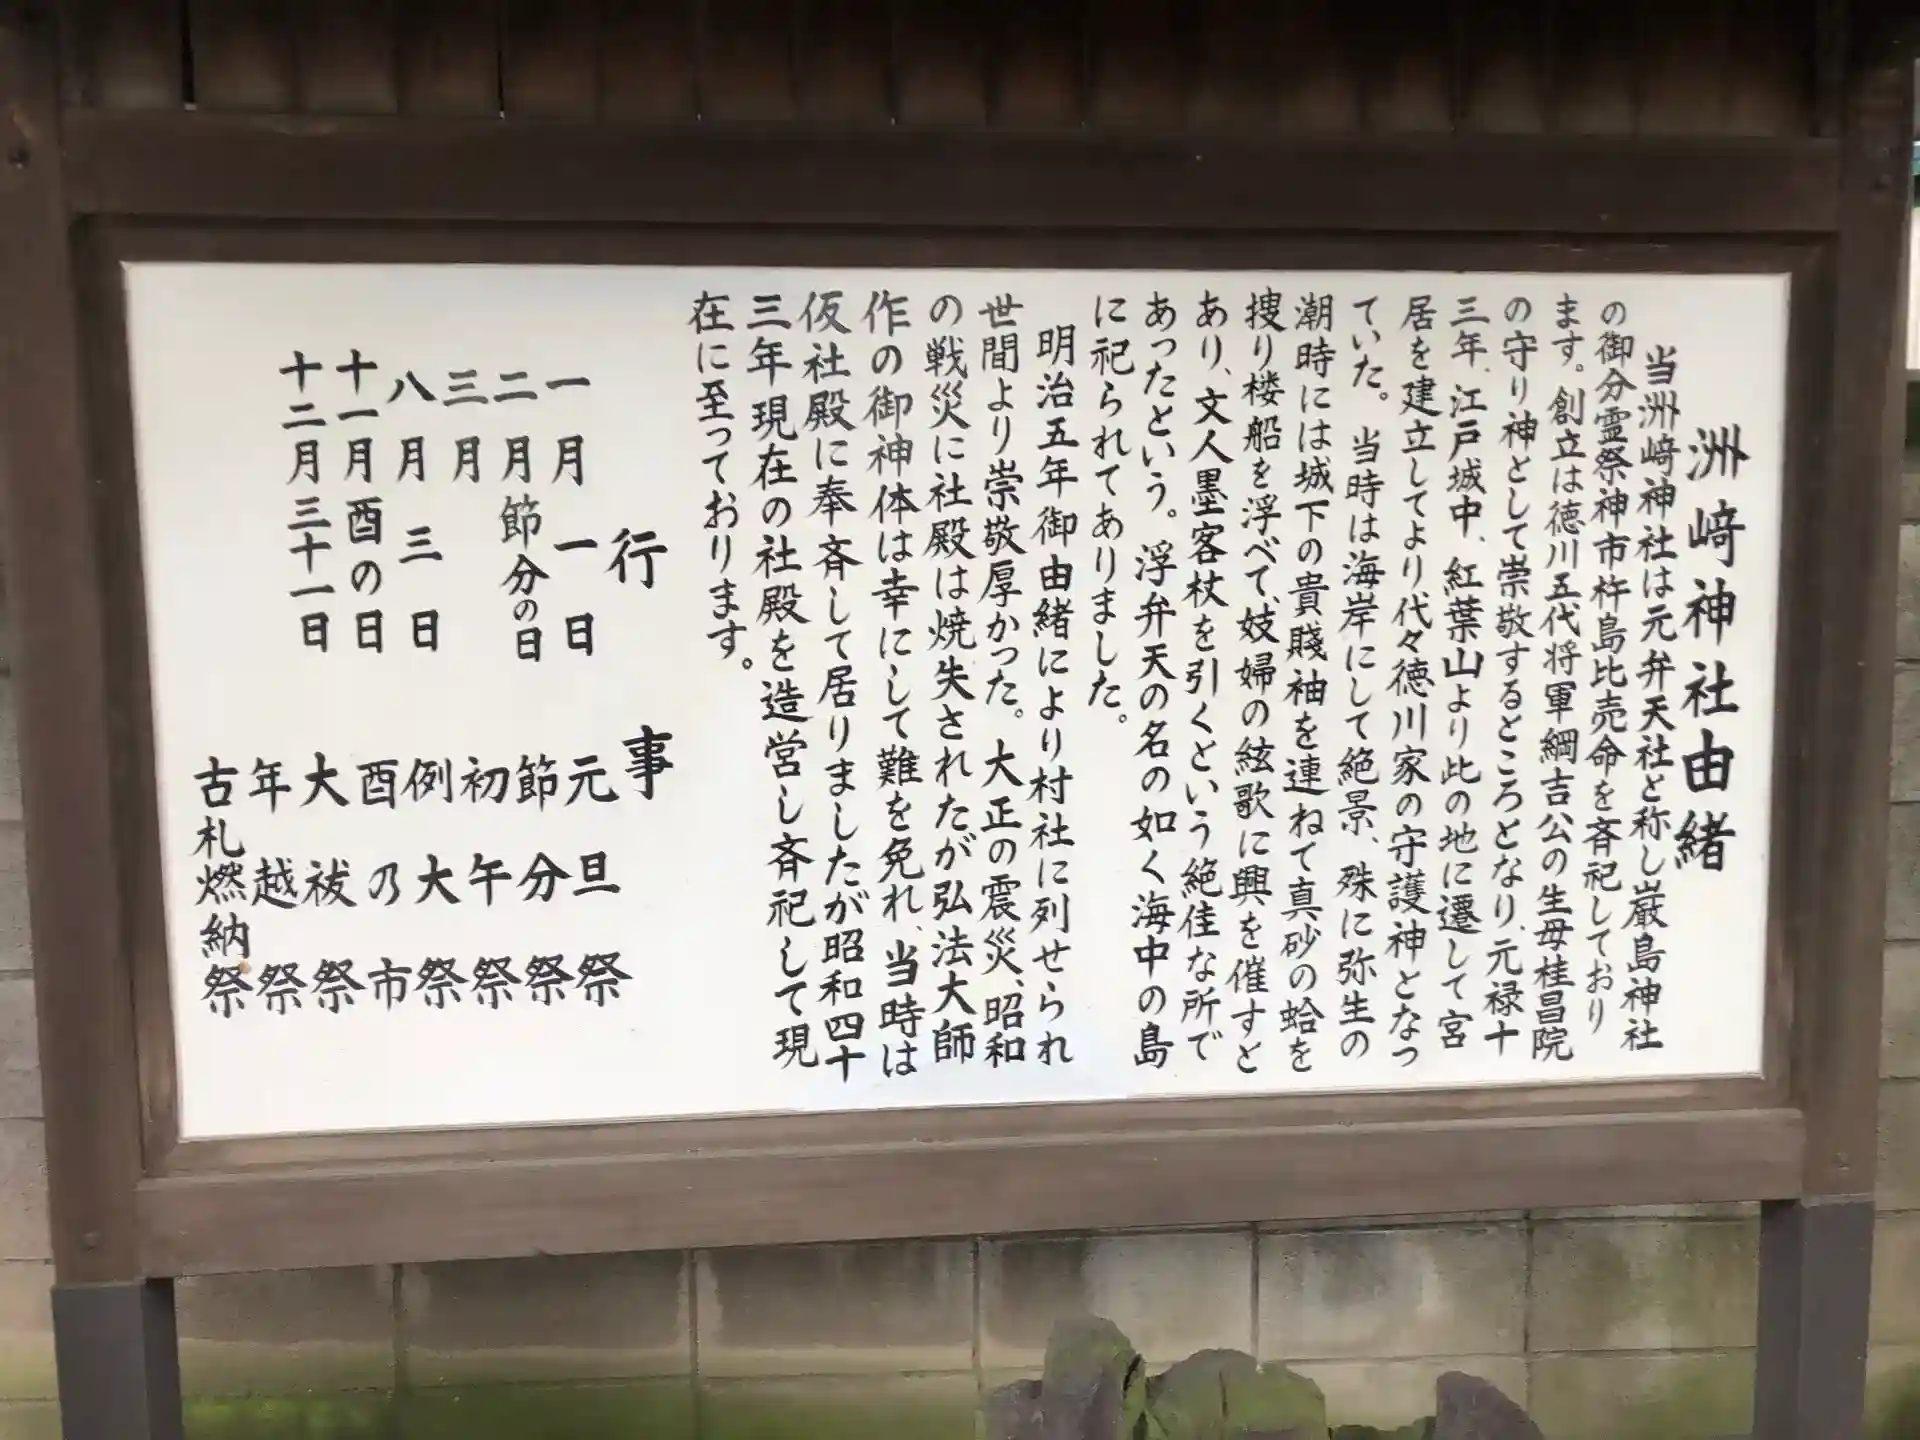 洲﨑神社由緒
当洲﨑神社は元弁天社と称し巌島神社
の御分霊祭神市杵島比売命を斉祀しており
ます。創立は徳川五代将軍綱吉公の生母桂昌院
の守り神として崇敬するところとなり、元禄十
三年、江戸城中、紅葉山より此の地に遷して宮
居を建立してより代々徳川家の守護神となっ
ていた。当時は海岸にして絶景、殊に弥生の
潮時には城下の貴賤袖を連ねて真砂の蛤を
捜り楼船を浮べて、妓婦の絃歌に興を催すと
あり、文人墨客杖を引くという絶佳な所で
あったという。浮弁天の名の如く海中の島
に祀られてありました。
明治五年御由緒により村社に列せられ
世間より崇敬厚かった。大正の震災、昭和
の戦災に社殿は焼失されたが弘法大師
作の御神体は幸にして難を免れ、当時は
仮社殿に奉斉して居りましたが昭和四十
三年現在の社殿を造営し斉祀して現
在に至っております。
行事
一月一日 元旦祭
二月節分の日 節分祭
三月 初午祭
八月三日 例大祭
十一月酉の日 酉乃市
十二月三十一日 大祓祭
年越祭
古札燃納祭